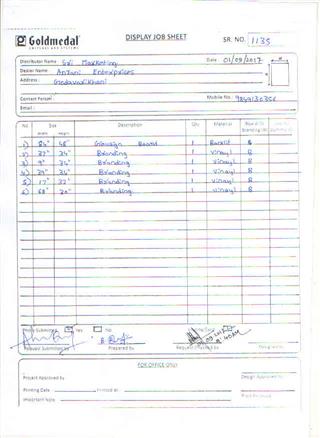 Goldmedal
SWITCHES AND SYSTEMS
DISPLAY JOB SHEET
SR. NO. 1135
Distributor Name: Sri Marketing
Date: 01/09/2017
Dealer Name: Anjani Enterprises
Address: Godavarikhani
Contact Person:
Mobile No.: 9849130356
Email:
No. Size Description Qty Material
Width Height
1) 84" 48" Glowsign Board 1 Backlit B
2) 37" 34" Branding 1 Vinayl B
3) 9" 34" Branding 1 Vinayl B
4) 34" Branding 1 Vinayl B
5) 17" Branding 1 Vinayl B
6) 68" Branding 1 Vinayl B
Photo Submitted Yes No
Request Submitted by Prepared by Designed by
FOR OFFICE ONLY
Project Approved by Design Approved by
Printing Date Printed at
Important Note